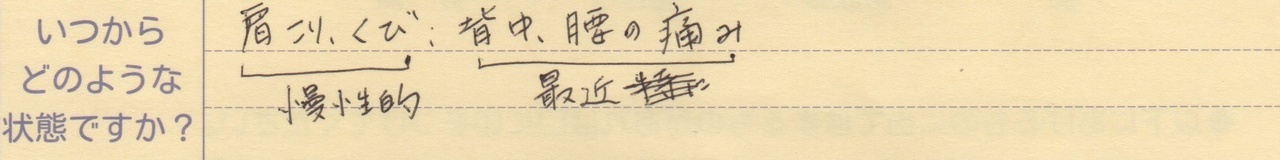 いつから
どのような
状態ですか?
肩こり、くび、背中、腰の痛み
慢性的 最近